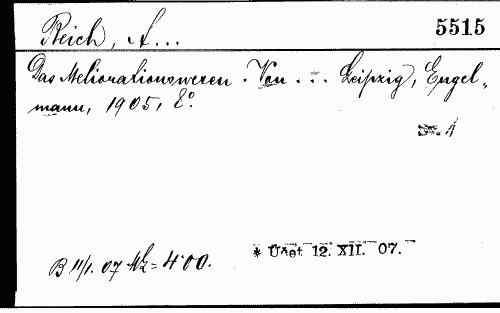 Reich, A...
5515
Das Meliorationswesen. Von ... Leipzig, Engel-
mann, 1905, 8°.
B 11/1. 07 Mk = 4·00.
* Učet 12. XII. 07.